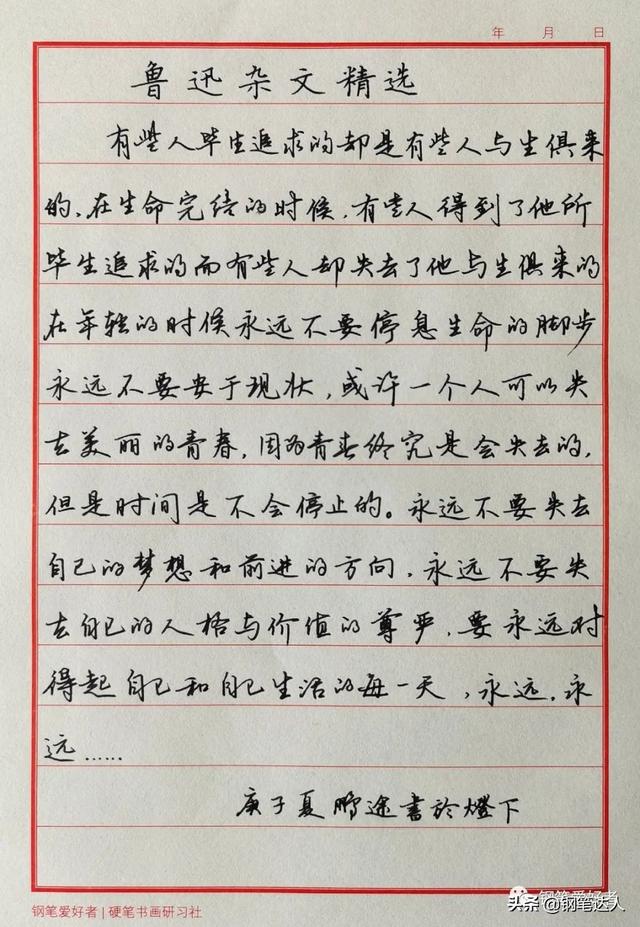 年 月 日
鲁迅杂文精选
有些人毕生追求的却是有些人与生俱来
的，在生命完结的时候，有些人得到了他所
毕生追求的而有些人却失去了他与生俱来的
在年轻的时候永远不要停息生命的脚步
永远不要安于现状，或许一个人可以失
去美丽的青春，因为青春终究是会失去的，
但是时间是不会停止的。永远不要失去
自己的梦想和前进的方向，永远不要失
去自己的人格与价值的尊严，要永远对
得起自己和自己生活的每一天，永远，永
远……
庚子夏鹏途書於燈下
钢笔爱好者
钢笔爱好者 | 硬笔书画研习社
头条 @钢笔达人